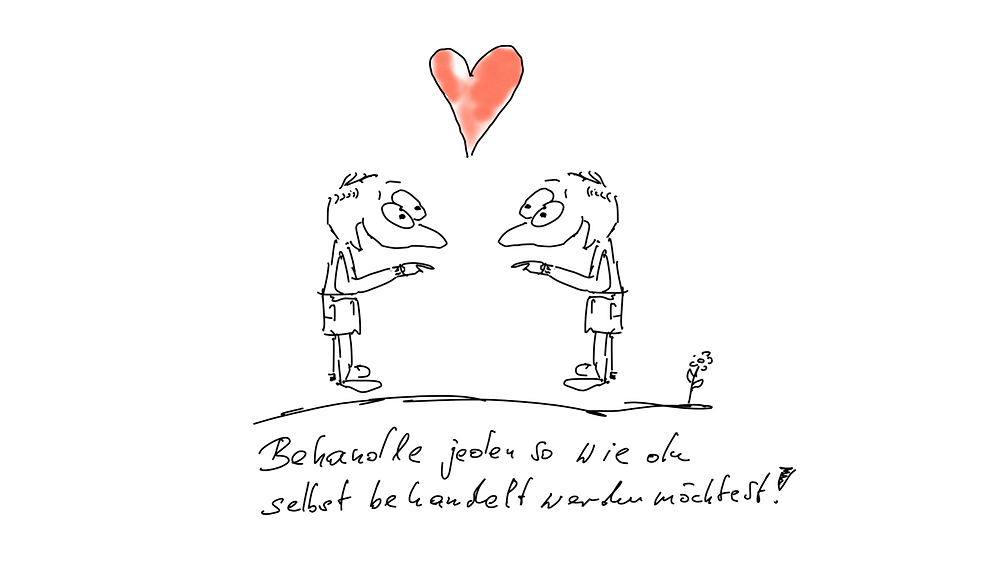 Behandle jeden so wie du
selbst behandelt werden möchtest!